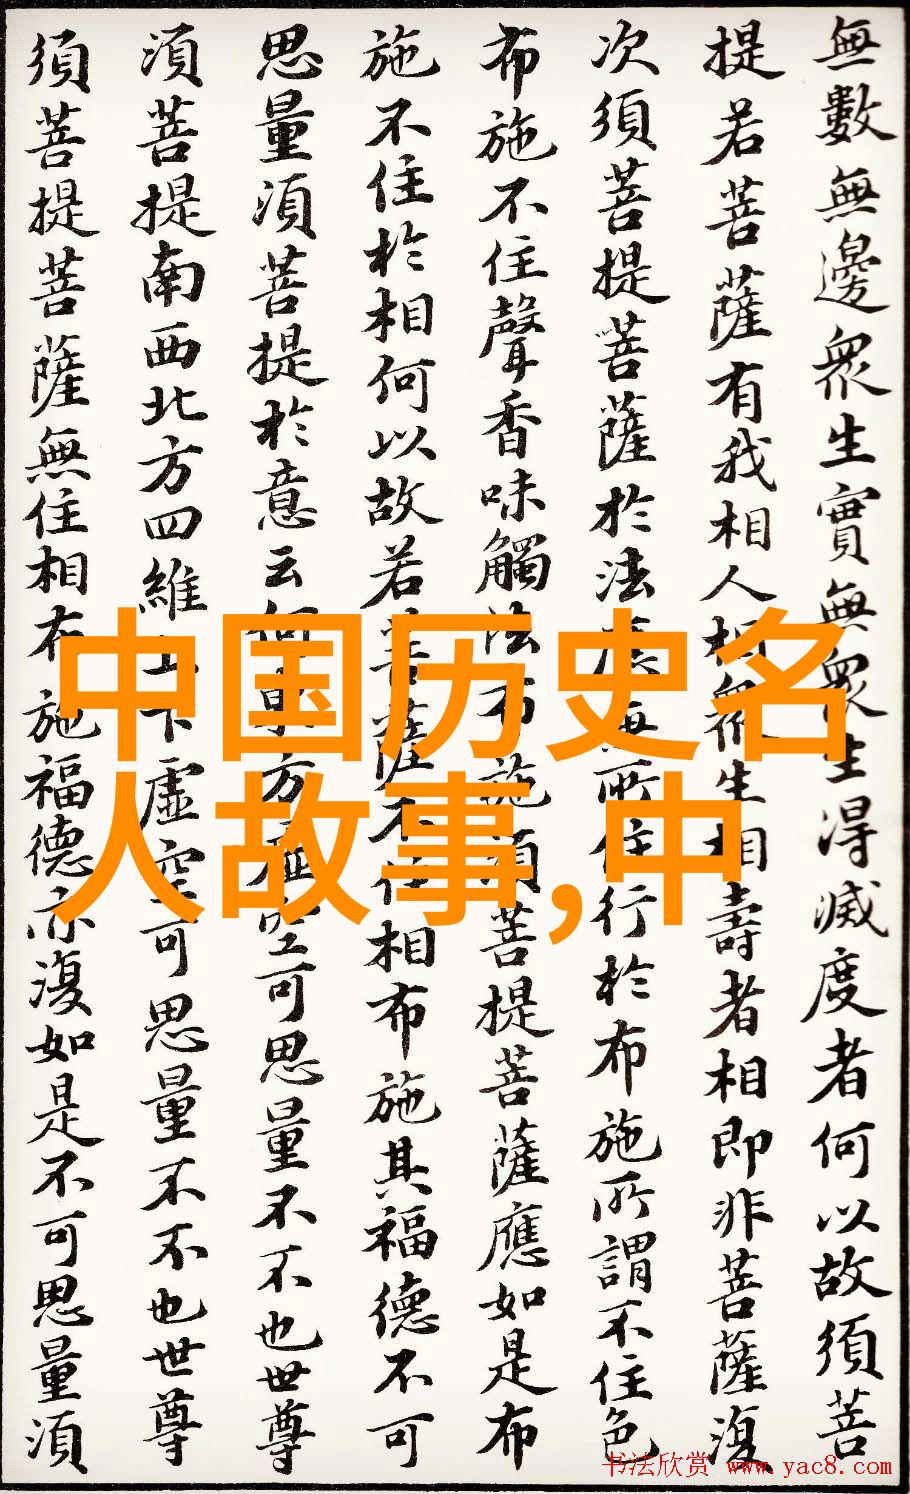 無數無邊眾生實無眾生得滅度者何以故須菩
提若菩薩有我相人相眾生相壽者相即非菩薩復
次須菩提菩薩於法應無所住行於布施所謂不住色
布施不住聲香味觸法布施須菩提菩薩應如是布
施不住於相何以故若菩薩不住相布施其福德不可
思量須菩提於意云何東方虛空可思量不不也世尊
須菩提南西北方四維上下虛空可思量不不也世尊
須菩提菩薩無住相布施福德亦復如是不可思量須
中国历史名
人故事,中
书法欣赏 www.yac8.com